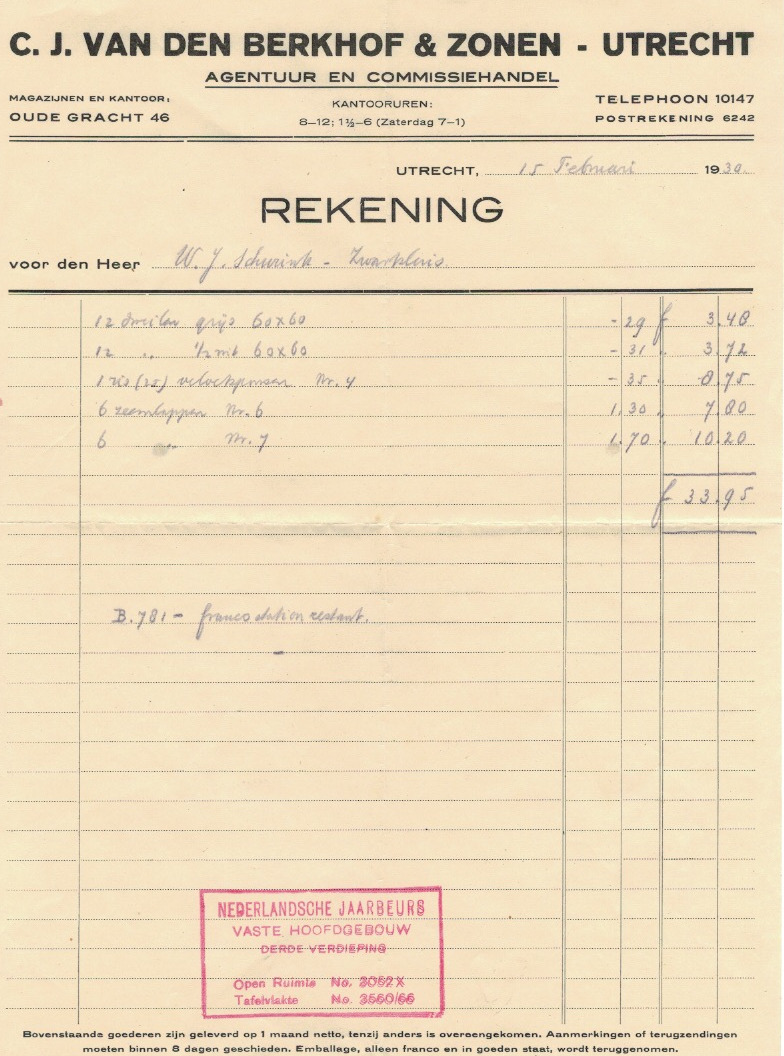 C. J. VAN DEN BERKHOF & ZONEN - UTRECHT
AGENTUUR EN COMMISSIEHANDEL
MAGAZIJNEN EN KANTOOR:
OUDE GRACHT 46
KANTOORUREN:
8—12; 1½—6 (Zaterdag 7—1)
TELEPHOON 10147
POSTREKENING 6242
UTRECHT, 15 Februari 1930
REKENING
voor den Heer W. J. Schurink - Zwartsluis
12 dweilen grijs 60x60 - 29 f 3.48
12 „ ½ wit 60x60 - 31 „ 3.72
1 ris (25) Nr. 4 - 35 „ 8.75
6 zeemlappen Nr. 6 1.30 „ 7.80
6 „ Nr. 7 1.70 „ 10.20
f 33.95
B. 781 - franco station restant.
NEDERLANDSCHE JAARBEURS
VASTE HOOFDGEBOUW
DERDE VERDIEPING
Open Ruimte No. 3052X
Tafelvlakte No. 3560/66
Bovenstaande goederen zijn geleverd op 1 maand netto, tenzij anders is overeengekomen. Aanmerkingen of terugzendingen
moeten binnen 8 dagen geschieden. Emballage, alleen franco en in goeden staat, wordt teruggenomen.